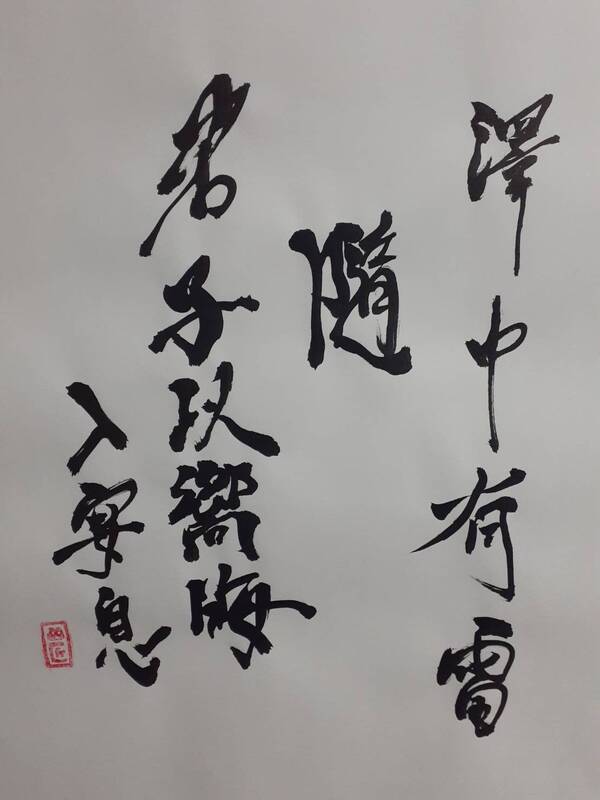 澤中有雷
隨
君子以嚮晦
入宴息